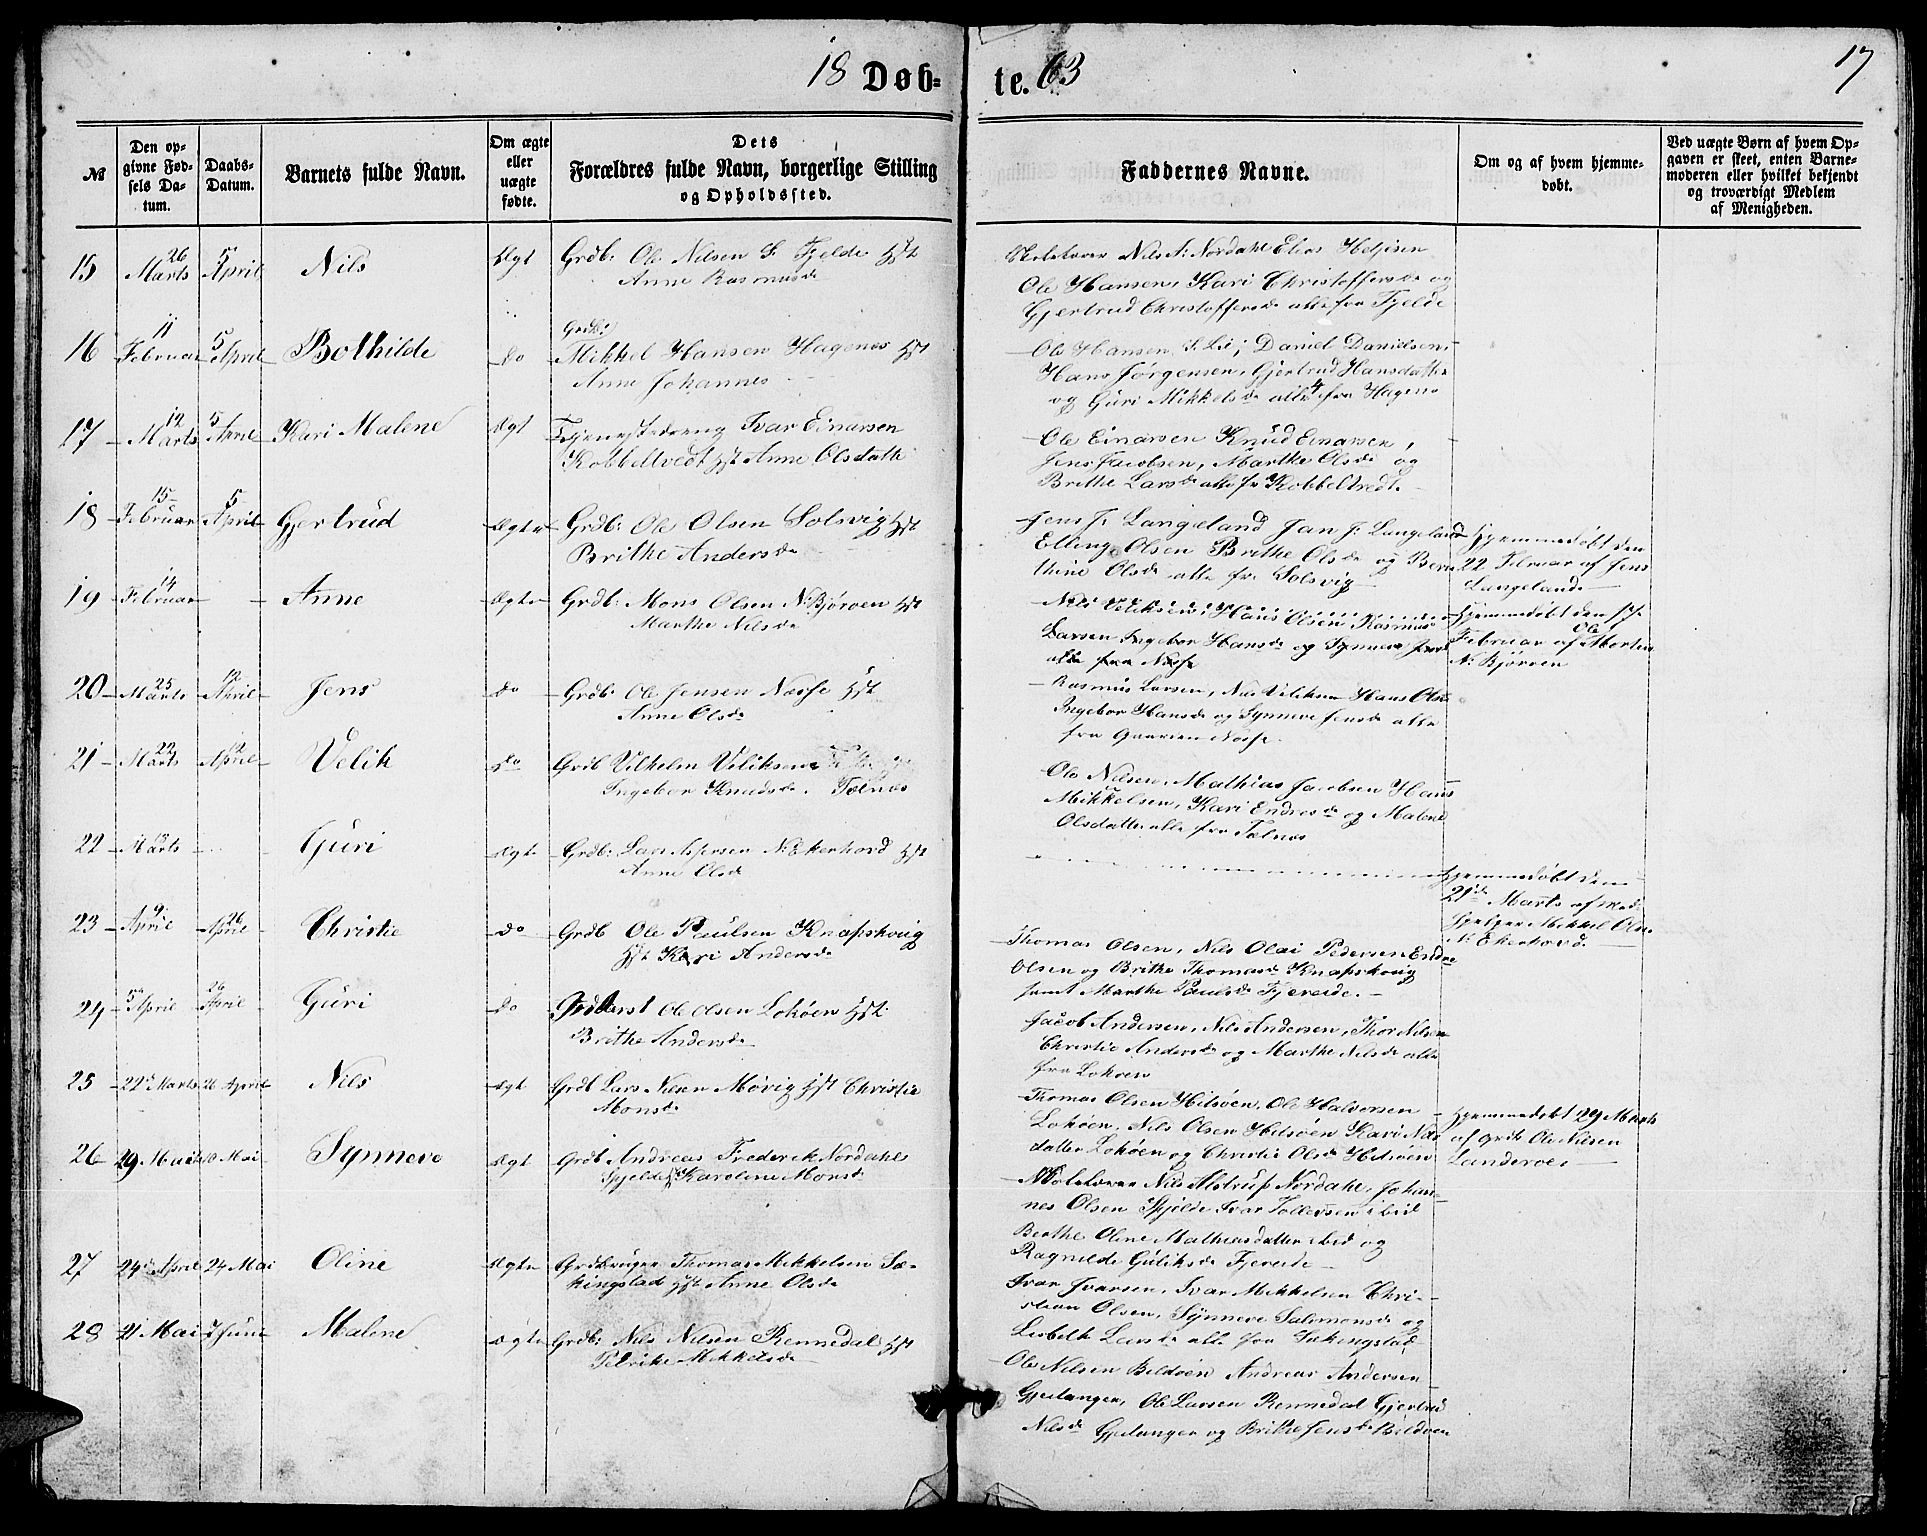 18 Døb= te. 63
17
№
Den op-
givne Fød-
sels Da-
tum.
Daabs-
Datum.
Barnets fulde Navn.
Om ægte
eller
uægte
fødte.
Dets
Forældres fulde Navn, borgerlige Stilling
og Opholdssted.
Faddernes Navne.
Om og af hvem hjemme-
døbt.
Ved uægte Børn af hvem Op-
gaven er skeet, enten Barne-
moderen eller hvilket bekjendt
og troværdigt Medlem
af Menigheden.
15 26 Marts 5 April Nils Ægt Grdb: Ole Nilsen S. Fjelde Hst
Anne Rasmusdr
Skolelærer Nils N: Nordahl Elias Heljesen
Ole Hansen, Kari Christoffersdr og
Gjertrud Christoffersdr alle fra Fjelde
16 11 Februar 5 April Bothilde do Grdb:
Mikkel Hansen Hagenes Hst
Anne Johannes
Ole Hansen S. Lie, Daniel Danielsen,
Hans Jørgensen, Gjertrud Hansdatter
og Guri Mikkelsdr alle 4 fra Hagenes
17 12 Marts 5 April Kari Malene Ægt Tjenestedreng Ivar Einarsen
Kobbeltvedt Hst Anne Olsdatter
Ole Einarsen Knud Einarsen,
Jens Jacobsen, Marthe Olsdr og
Brithe Larsdr alle fr Kobbeltvedt
18 15 Februar 5 April Gjertrud Ægte Grdb: Ole Olsen Solsvig Hst
Brithe Andersdr
Jens J. Langeland Jan J. Langeland
Elling Olsen Brithe Olsdr og Bern
thine Olsdr alle fra Solsvig
Hjemmedøbt den
22 Februar af Jens
Langeland
19 14 Februar Anne Ægte Grdb: Mons Olsen N: Bjørøen Hst
Marthe Nilsdr
Nils Veliksen, Hans Olsen Rasmus
Larsen Ingebor Hansdr og Synneve Jensd
alle fra Næsse
Hjemmedøbt den 17de
Februar af Ole Morten
N: Bjørøen
20 25 Marts 12 April Jens do Grdb: Ole Jensen Næsse Hst
Anne Olsdr
Rasmus Larsen, Nils Veliksen Hans Olsen
Ingebor Hansdr og Synneve Jensdr alle
fra Gaarden Næsse.
21 22 Marts 12 April Velik do Grdb Vilhelm Veliksen
Ingebor Knudsdr. Tælnæs
Ole Nilsen, Mathias Jacobsen Hans
Mikkelsen, Kari Endresdr og Malene
Olsdatter alle fra Telnæs
22 13 Marts Guri Ægte Grdb: Lars Ipersen N: Ekerhovd Hst
Anne Olsdr
Hjemmedøbt den
21de Marts af Med-
hjelper Mikkel Olsen
N: Ekerhovd.
23 9 April 26 April Christie do Grdb Ole Paulsen Knapskovig
Hst Kari Andersdr
Thomas Olsen, Nils Olai Pedersen Endre
Olsen og Brithe Thomasdr Knapskovig
samt Marthe Paulsdr Fjereide.
24 5te April 26 April Guri do Ole Olsen Lokøen Hst
Brithe Andersdr
Jacob Andersen, Nils Andersen, Thor Nilsen
Christie Andersdr og Marthe Nilsdr alle
fra Lokøen
25 22de Marts 26 April Nils Ægt Grdb Lars Nilsen Møvig Hst Christie
Monsdr
Thomas Olsen Hitsøen, Ole Halversen
Lokøen, Nils Olsen Hitsøen Kari Nils
datter Lokøen og Christie Olsdr Hitsøen
Hjemmedøbt 29 Marts
af Grdb Ole Nilsen
Landerøen
26 29 Mai Synneve Ægt Grdb Andreas Frederik Nordahl
Spjelde Karoline Monsdr
Skolelærer Nils Alstrup Nordahl, Johan-
nes Olsen Spjelde Ivar Tollevsen ibid
Berthe Oline Mathiasdatter ibid og
Ragnilde Guliksdr Fjereide
27 24de April 24 Mai Oline Ægte Grdbruger Thomas Mikkelsen Sæ-
kingstad Hst Anne Olsdr
Ivar Ivarsen, Ivar Mikkelsen Chri-
stian Olsen, Synneve Salomonsdr og
Lisbeth Larsdr alle fra Sækingstad
28 21 Mai 7 Juni Malene Ægte Grdb: Nils Nilsen Rennedal Hst
Pernike Mikkelsdr
Ole Nilsen Bildøen Andreas Andersen
Gjelanger, Ole Larsen Rennedal Gjertrud
Nilsdr Gjelanger og Brithe Jensdr Bildøen